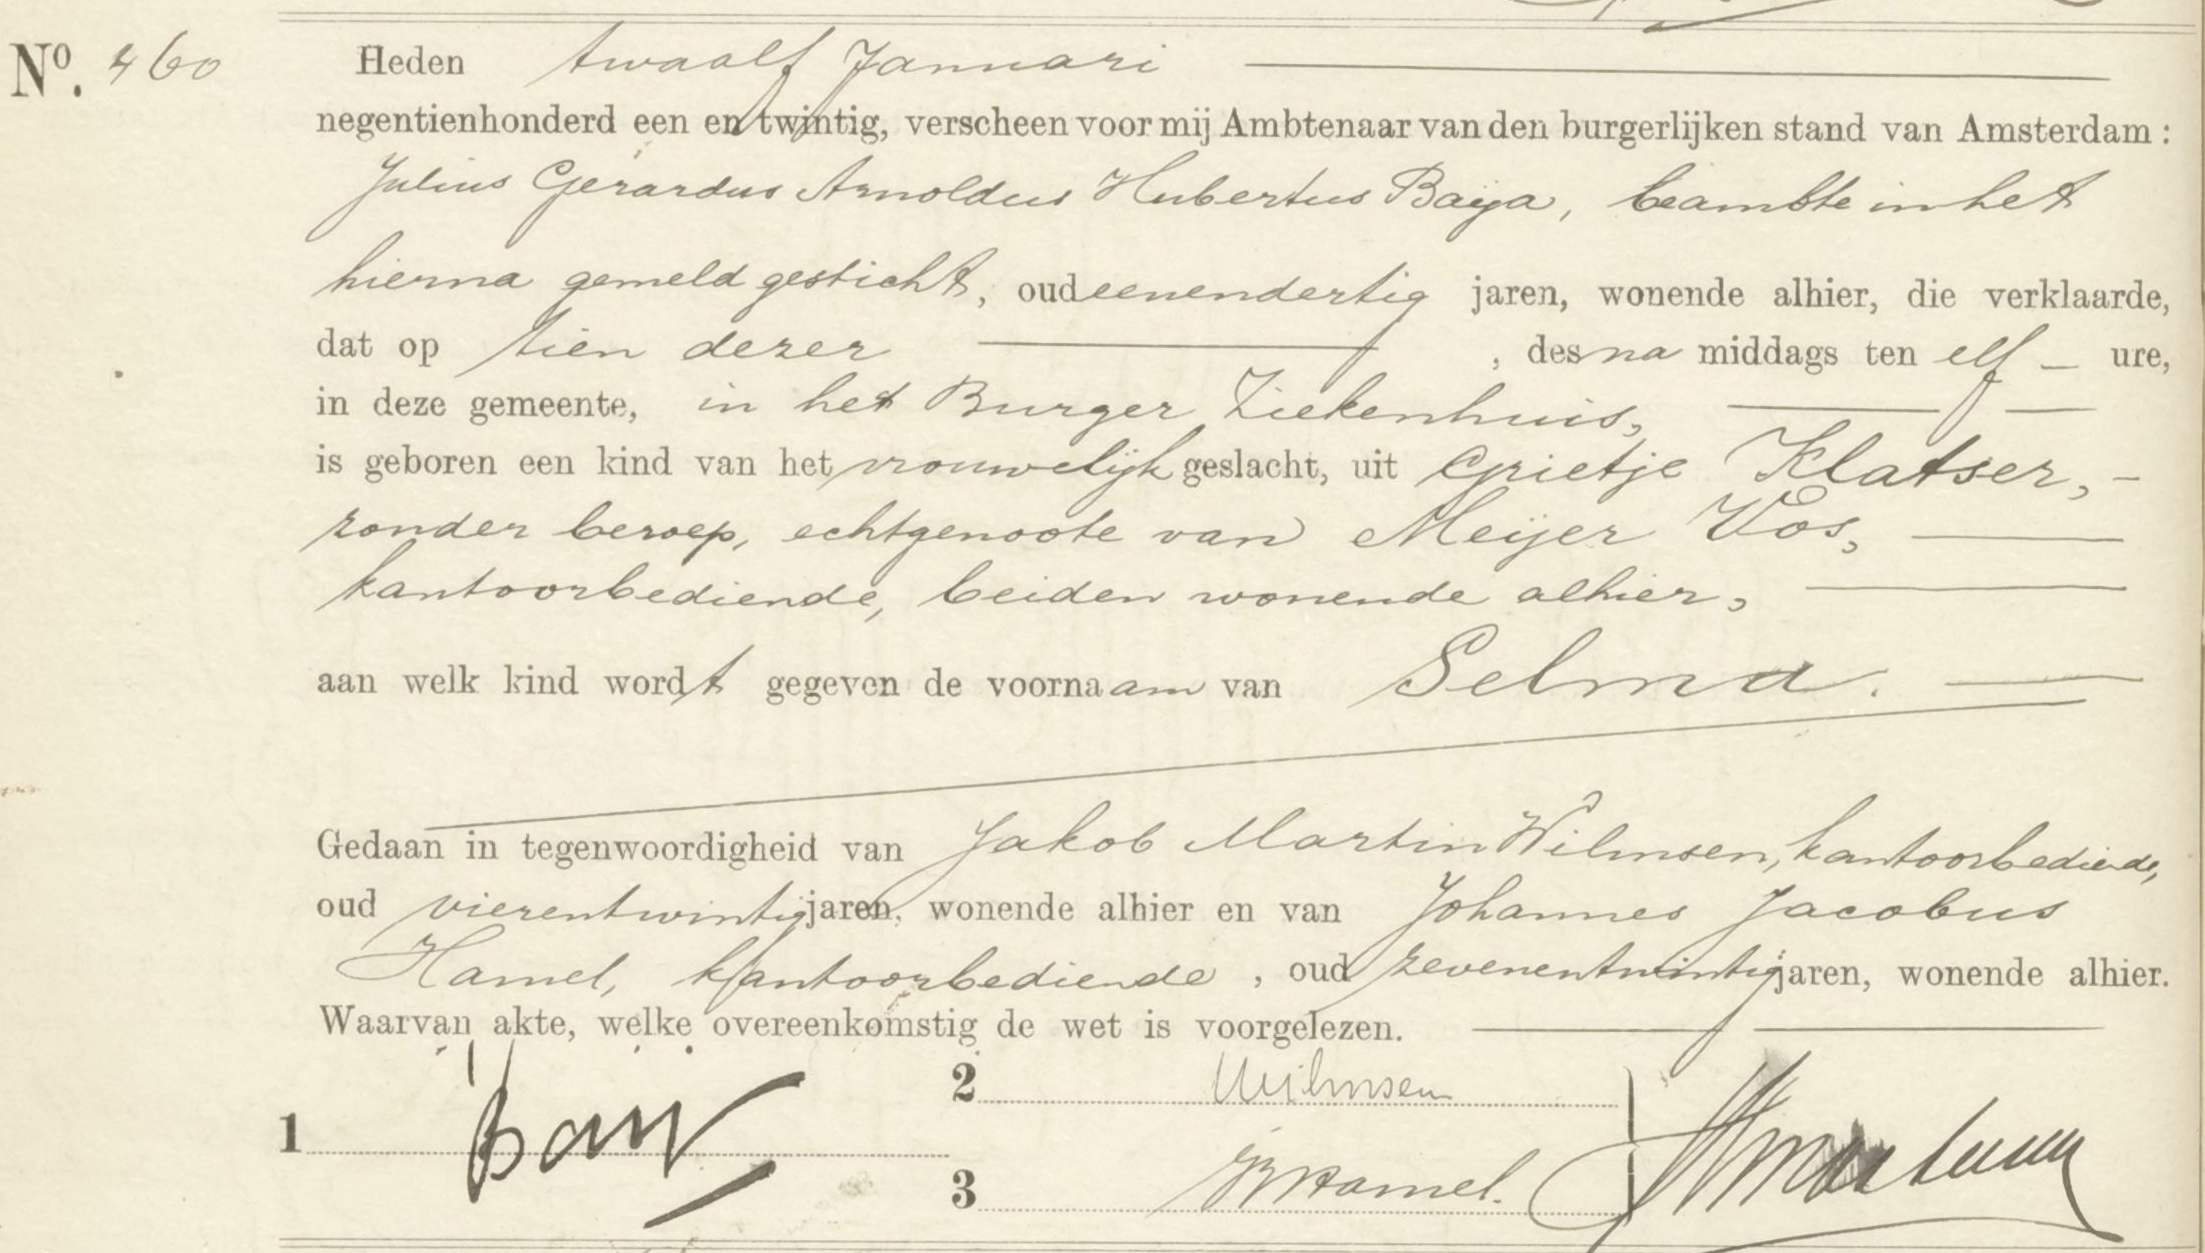 Nº. 460 Heden twaalf Januari
negentienhonderd een en twintig, verscheen voor mij Ambtenaar van den burgerlijken stand van Amsterdam:
Julius Gerardus Arnoldus Hubertus Baija, beambte in het
hierna gemeld gesticht, oud eenendertig jaren, wonende alhier, die verklaarde,
dat op tien dezer, des na middags ten elf ure,
in deze gemeente, in het Burger Ziekenhuis,
is geboren een kind van het vrouwelijk geslacht, uit Grietje Klatser,
zonder beroep, echtgenoote van Meijer Vos,
kantoorbediende, beiden wonende alhier,
aan welk kind wordt gegeven de voornaam van Selma.
Gedaan in tegenwoordigheid van Jakob Martin Wilmsen, kantoorbediende,
oud vierentwintig jaren, wonende alhier en van Johannes Jacobus
Hamel, kantoorbediende, oud zevenentwintig jaren, wonende alhier.
Waarvan akte, welke overeenkomstig de wet is voorgelezen.
2 Wilmsen
1
3 JJHamel.